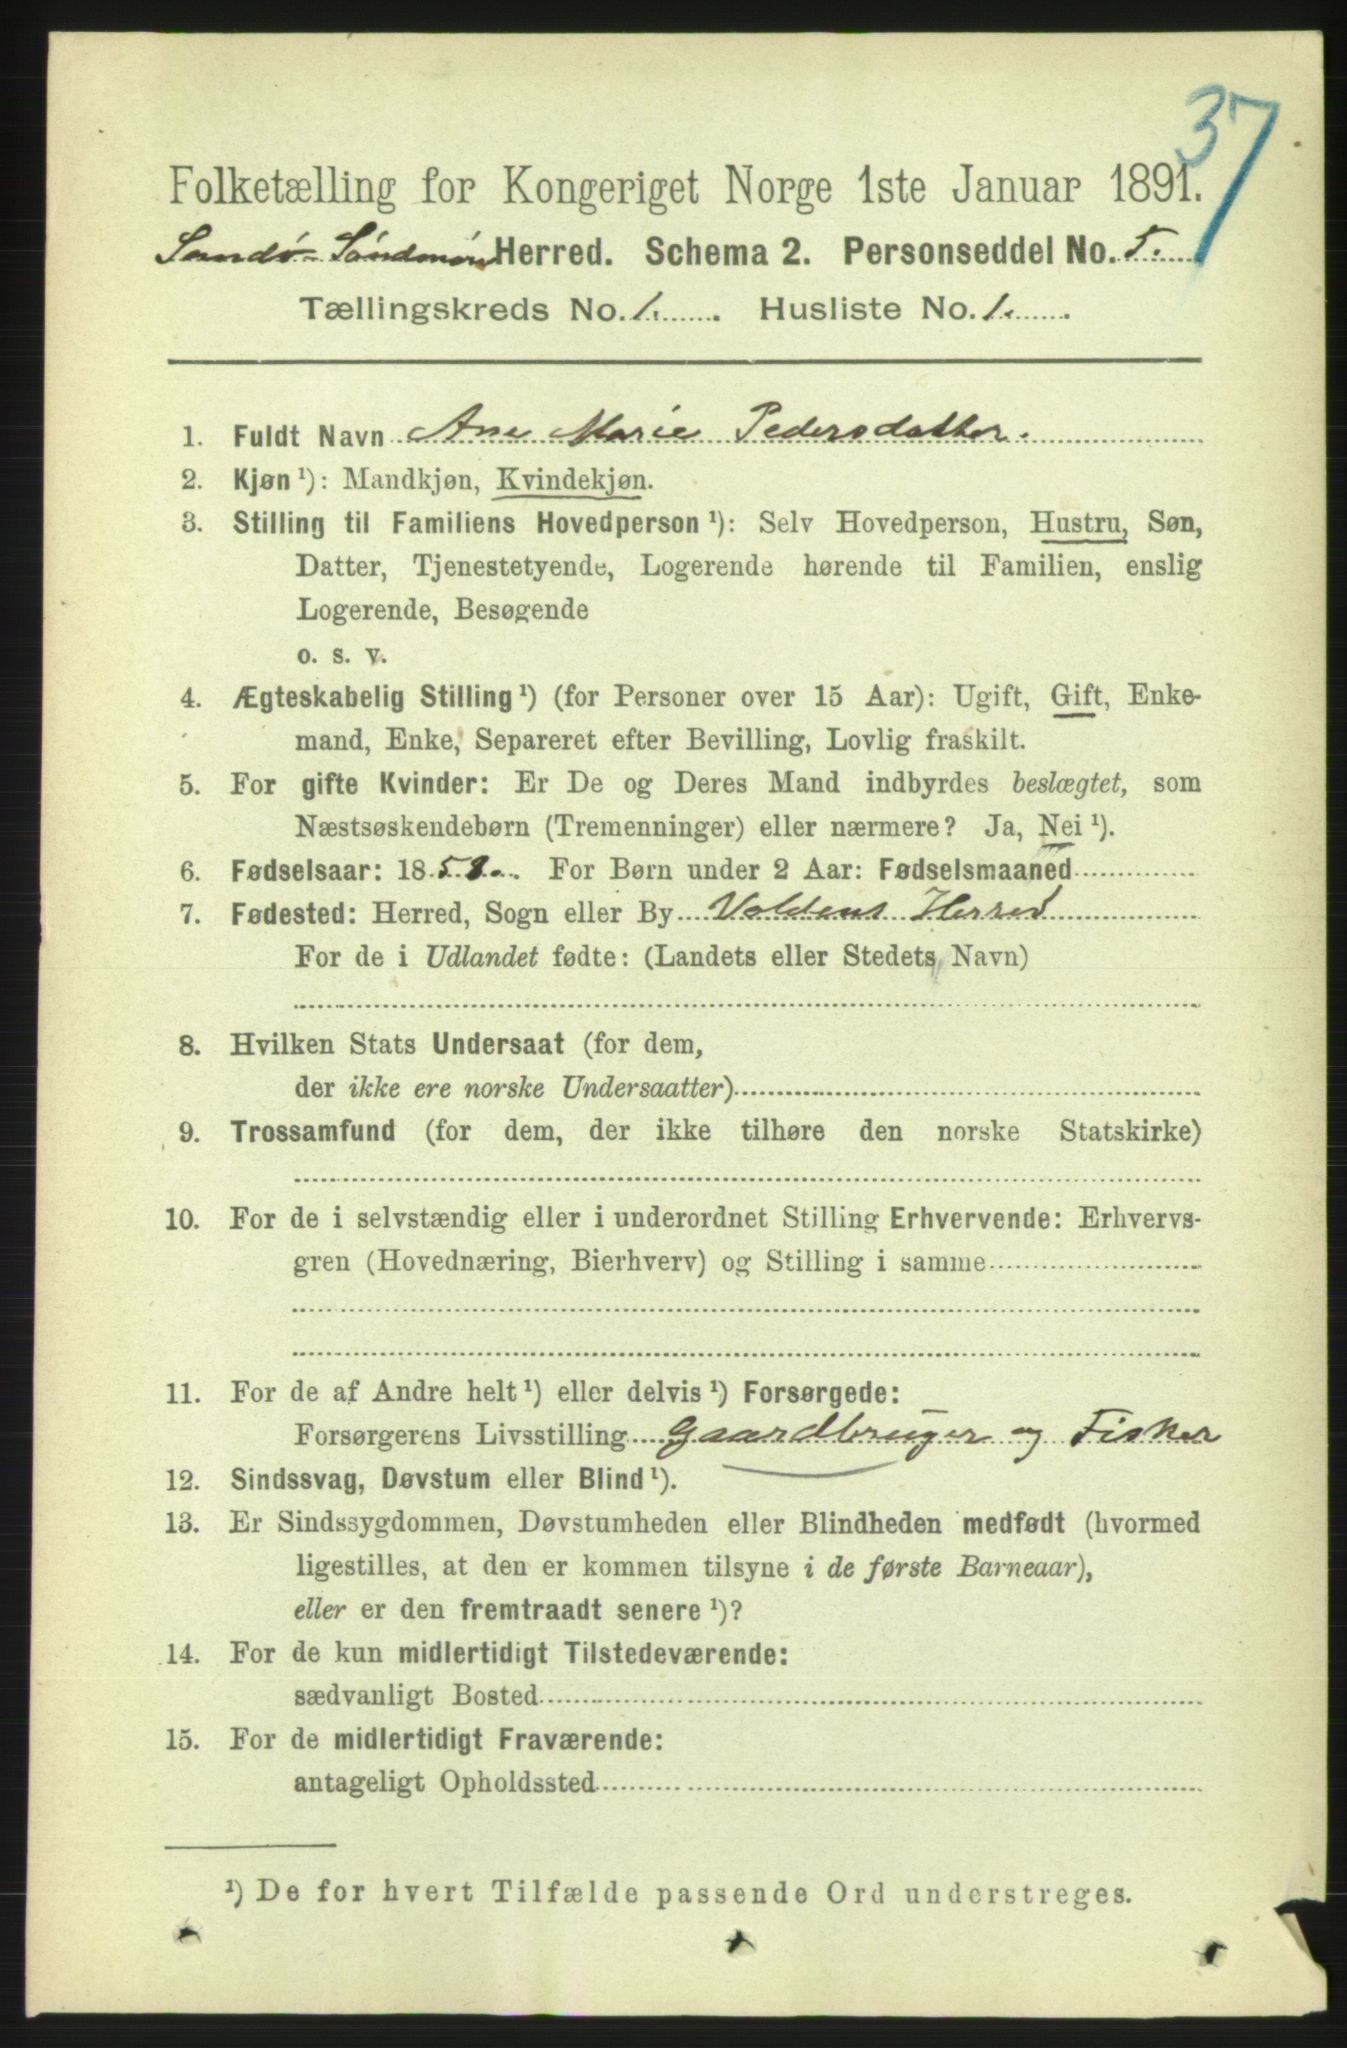 37
Folketælling for Kongeriget Norge 1ste Januar 1891.
Sandø Søndmøre Herred. Schema 2. Personseddel No. 5.
Tællingskreds No. 1. Husliste No. 1.
1. Fuldt Navn Ane Marie Pedersdatter.
2. Kjøn ¹): Mandkjøn, Kvindekjøn.
3. Stilling til Familiens Hovedperson ¹): Selv Hovedperson, Hustru, Søn,
Datter, Tjenestetyende, Logerende hørende til Familien, enslig
Logerende, Besøgende
o. s. v.
4. Ægteskabelig Stilling ¹) (for Personer over 15 Aar): Ugift, Gift, Enke-
mand, Enke, Separeret efter Bevilling, Lovlig fraskilt.
5. For gifte Kvinder: Er De og Deres Mand indbyrdes beslægtet, som
Næstsøskendebørn (Tremenninger) eller nærmere? Ja, Nei ¹).
6. Fødselsaar: 18 58. For Børn under 2 Aar: Fødselsmaaned
7. Fødested: Herred, Sogn eller By Voldens Herred
For de i Udlandet fødte: (Landets eller Stedets Navn)
8. Hvilken Stats Undersaat (for dem,
der ikke ere norske Undersaatter)
9. Trossamfund (for dem, der ikke tilhøre den norske Statskirke)
10. For de i selvstændig eller i underordnet Stilling Erhvervende: Erhvervs-
gren (Hovednæring, Bierhverv) og Stilling i samme
11. For de af Andre helt ¹) eller delvis ¹) Forsørgede:
Forsørgerens Livsstilling Gaardbruger og Fisker
12. Sindssvag, Døvstum eller Blind ¹).
13. Er Sindssygdommen, Døvstumheden eller Blindheden medfødt (hvormed
ligestilles, at den er kommen tilsyne i de første Barneaar),
eller er den fremtraadt senere ¹)?
14. For de kun midlertidigt Tilstedeværende:
sædvanligt Bosted
15. For de midlertidigt Fraværende:
antageligt Opholdssted
¹) De for hvert Tilfælde passende Ord understreges.